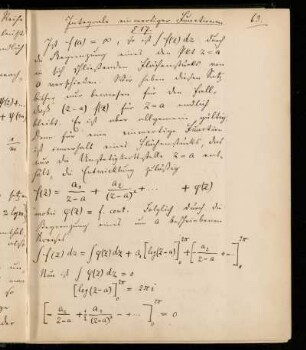 Integrale eindeutiger Functionen
63.
§ 17.
Ist f(a) = ∞, so ist ∫f(z)dz durch
die Begrenzung eines den Pkt z=a
in sich schließenden Flächenstücks von
o verschieden. Wir haben diesen Satz
bisher nur bewiesen für den Fall,
daß (z-a) f(z) für z=a endlich
bleibt. Er ist aber allgemein gültig.
Denn für eine einwerthige Function
ist innerhalb eines Flächenstücks, das
nur die Unstetigkeitsstelle z=a ent-
hält, die Entwicklung zulässig
f(z) = a₁/(z-a) + a₂/(z-a)² + ... + φ(z)
wobei φ(z) = f. cont. Folglich durch die
Begrenzung eines um a beschriebenen
Kreises
∫f(z)dz = ∫φ(z)dz + a₁[log(z-a)]₀^2π + [-a₂/(z-a) + -]₀^2π
Nun ist ∫φ(z)dz = 0
[log(z-a)]₀^2π = 2πi
[-a₂/(z-a) + ½ a₃/(z-a)² - + ...]₀^2π = 0